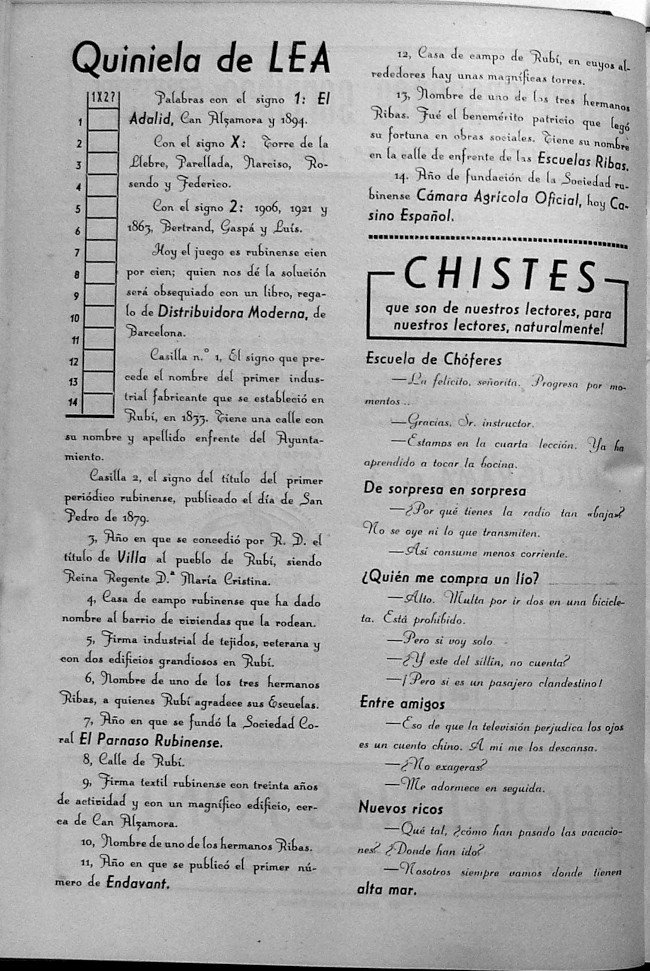 Quiniela de LEA
1X2?
1
2
3
4
5
6
7
8
9
10
11
12
13
14
Palabras con el signo 1: El
Adalid, Can Alzamora y 1894.
Con el signo X: Torre de la
Llebre, Parellada, Narciso, Ro-
sendo y Federico.
Con el signo 2: 1906, 1921 y
1863, Bertrand, Gaspá y Luís.
Hoy el juego es rubinense cien
por cien; quien nos dé la solución
será obsequiado con un libro, rega-
lo de Distribuidora Moderna, de
Barcelona.
Casilla n.º 1, El signo que pre-
cede el nombre del primer indus-
trial fabricante que se estableció en
Rubí, en 1833. Tiene una calle con
su nombre y apellido enfrente del Ayunta-
miento.
Casilla 2, el signo del título del primer
periódico rubinense, publicado el día de San
Pedro de 1879.
3, Año en que se concedió por R. D. el
título de Villa al pueblo de Rubí, siendo
Reina Regente D.ª María Cristina.
4, Casa de campo rubinense que ha dado
nombre al barrio de viviendas que la rodean.
5, Firma industrial de tejidos, veterana y
con dos edificios grandiosos en Rubí.
6, Nombre de uno de los tres hermanos
Ribas, a quienes Rubí agradece sus Escuelas.
7, Año en que se fundó la Sociedad Co-
ral El Parnaso Rubinense.
8, Calle de Rubí.
9, Firma textil rubinense con treinta años
de actividad y con un magnífico edificio, cer-
ca de Can Alzamora.
10, Nombre de uno de los hermanos Ribas.
11, Año en que se publicó el primer nú-
mero de Endavant.
12, Casa de campo de Rubí, en cuyos al-
rededores hay unas magníficas torres.
13, Nombre de uno de los tres hermanos
Ribas. Fué el benemérito patricio que legó
su fortuna en obras sociales. Tiene su nombre
en la calle de enfrente de las Escuelas Ribas.
14. Año de fundación de la Sociedad ru-
binense Cámara Agrícola Oficial, hoy Ca-
sino Español.
CHISTES
que son de nuestros lectores, para
nuestros lectores, naturalmente!
Escuela de Chóferes
—La felicito, señorita. Progresa por mo-
mentos..
—Gracias, Sr. instructor.
—Estamos en la cuarta lección. Ya ha
aprendido a tocar la bocina.
De sorpresa en sorpresa
—¿Por qué tienes la radio tan «baja»?
No se oye ni lo que transmiten.
—Así consume menos corriente.
¿Quién me compra un lío?
—Alto. Multa por ir dos en una bicicle-
ta. Está prohibido.
—Pero si voy solo
—¿Y este del sillin, no cuenta?
—¡Pero si es un pasajero clandestino!
Entre amigos
—Eso de que la televisión perjudica los ojos
es un cuento chino. A mí me los descansa.
—¿No exageras?
—Me adormece en seguida.
Nuevos ricos
—Qué tal, ¿cómo han pasado las vacacio-
nes? ¿Donde han ido?
—Nosotros siempre vamos donde tienen
alta mar.